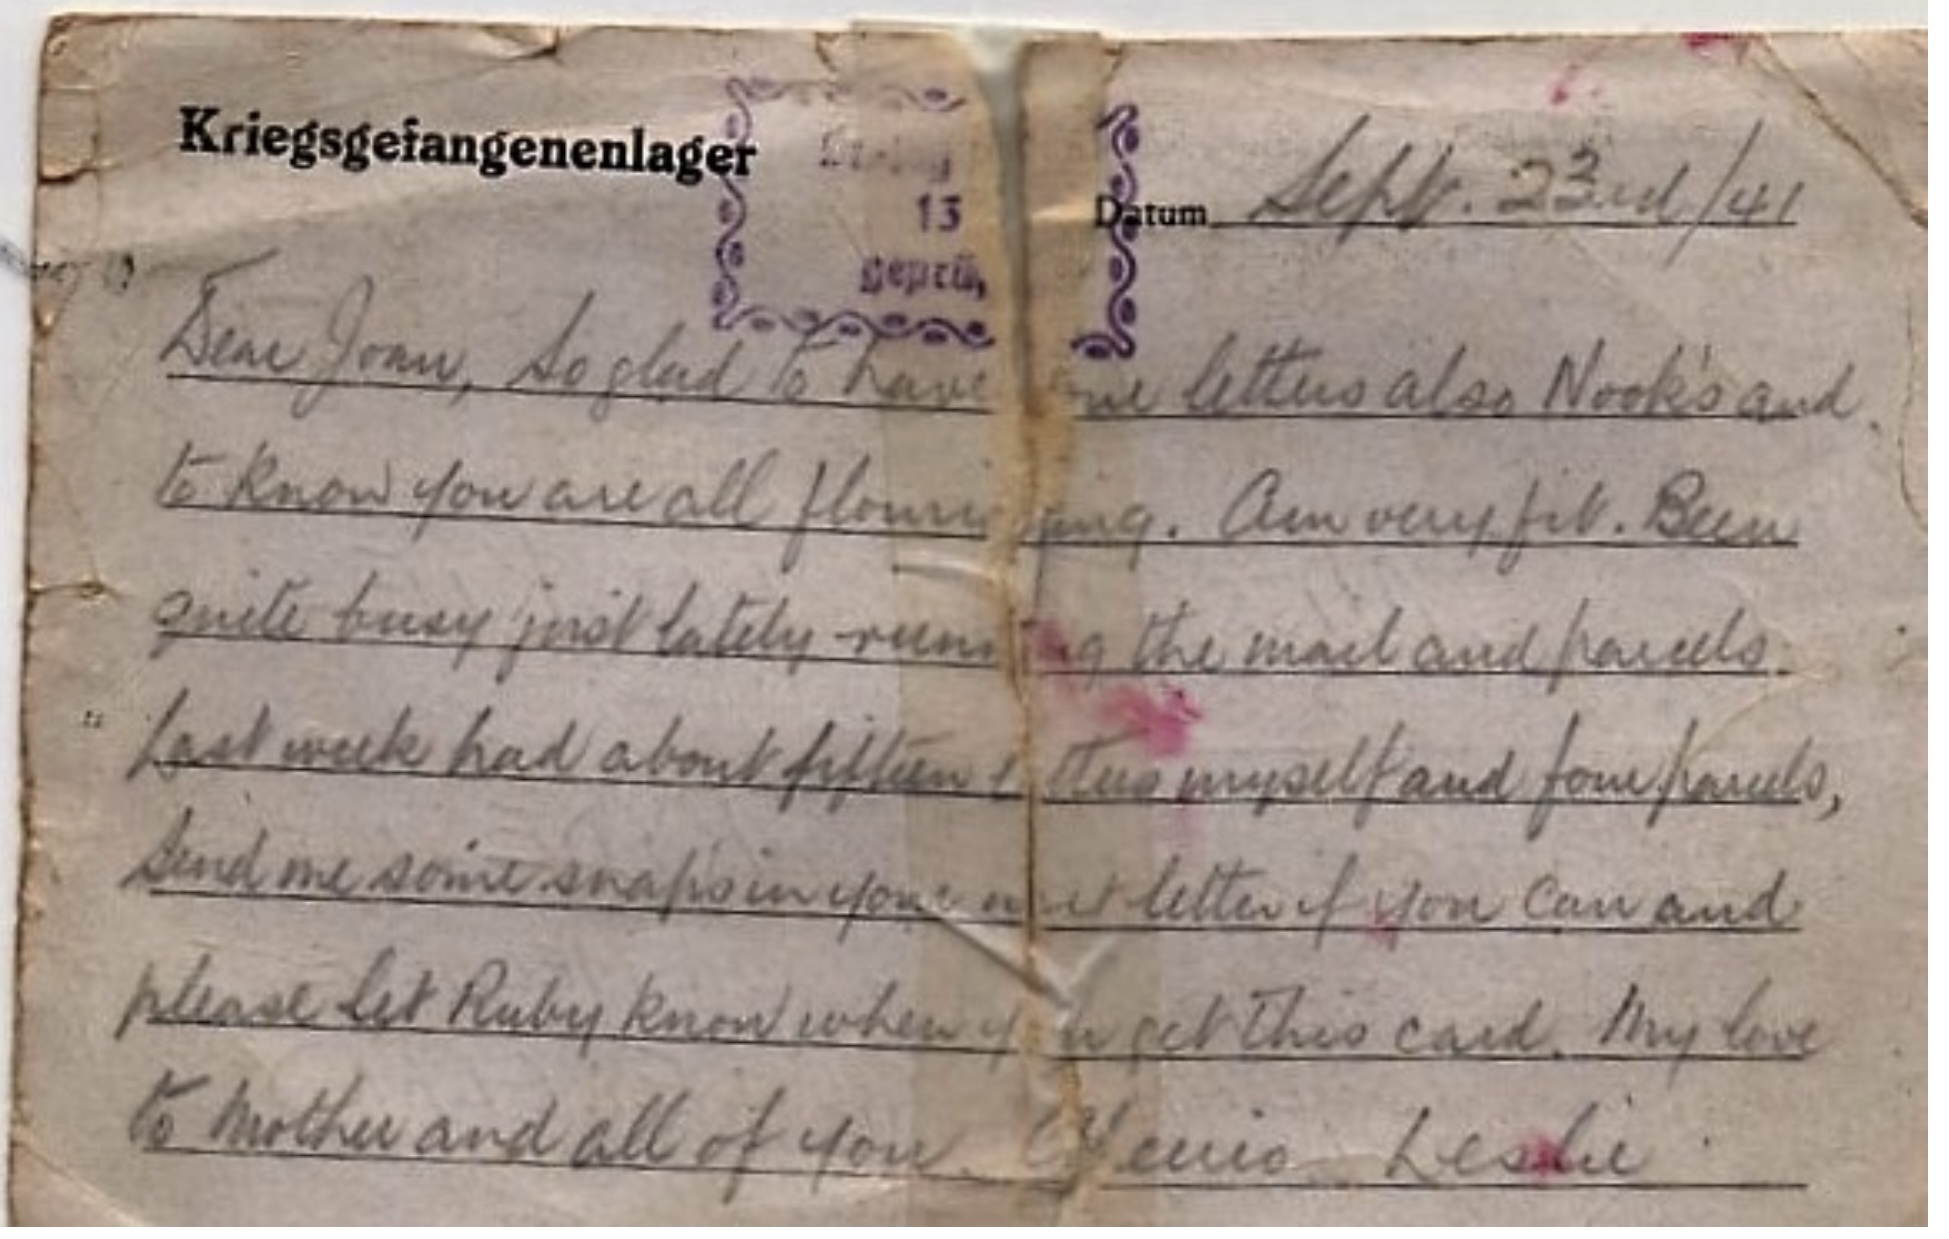 Kriegsgefangenenlager
13
geprü
Datum Sept. 23rd/41
Dear Joan, So glad to have letters also Nook's and
to know you are all flourishing. Am very fit. Been
quite busy just lately running the mail and parcels.
Last week had about fifteen letters myself and four parcels,
Send me some snaps in your next letter if you can and
please let Ruby know when you get this card. My love
to Mother and all of you. Leslie